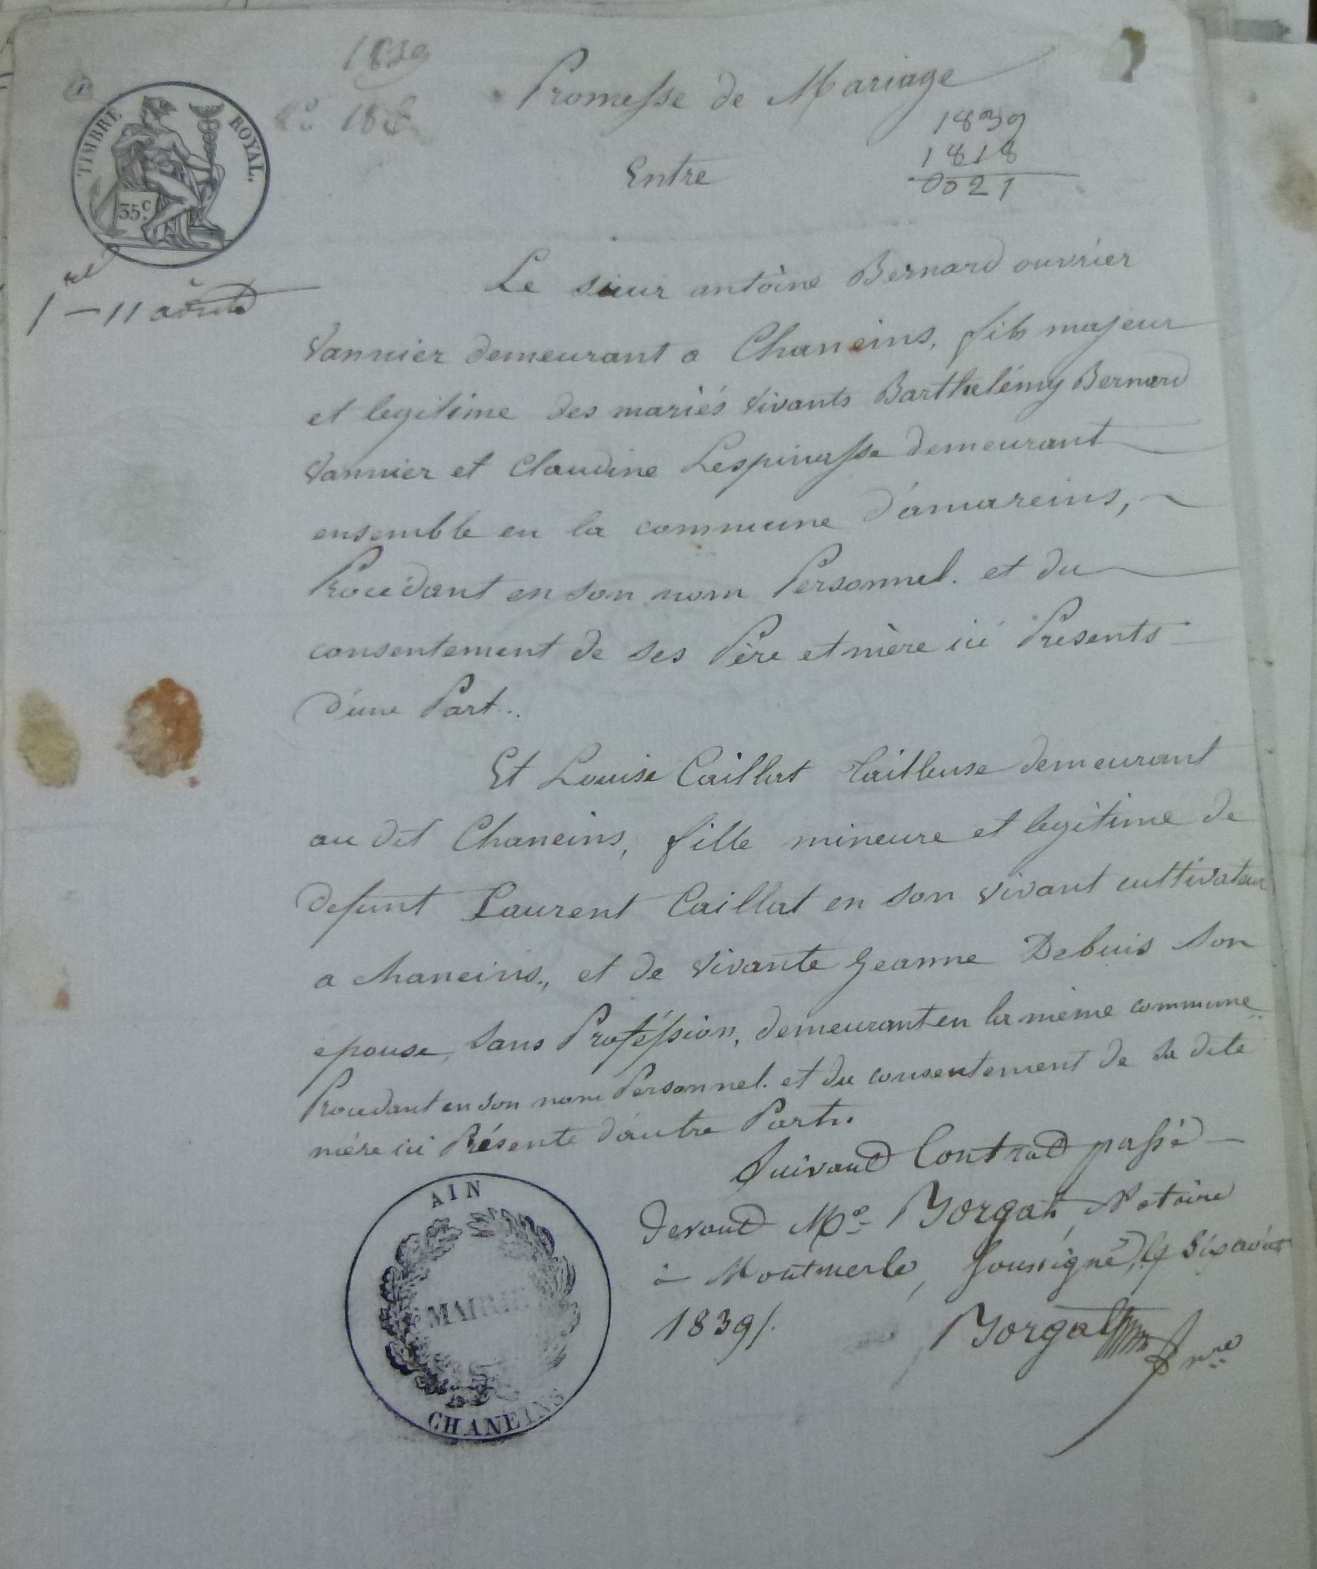 1839
Promesse de Mariage
1839
1818
0021
Entre
TIMBRE ROYAL.
35c.
1re - 11 août
Le sieur antoine Bernard ouvrier
Vannier demeurant a Chaneins, fils majeur
et legitime des mariés vivants Barthelémy Bernard
Vannier et Claudine Lespinasse demeurant
ensemble en la commune d'amareins,
Procédant en son nom Personnel. et du
consentement de ses Père et mère ici Présents
d'une Part.
Et Louise Caillat tailleuse demeurant
au dit Chaneins, fille mineure et legitime de
defunt Laurent Caillat en son vivant cultivateur
a chaneins, et de vivante Jeanne Debuis son
epouse, sans Proféssion, demeurant en la même commune
Procédant en son nom Personnel. et du consentement de sa dite
mére ici Présente d'autre Part.
Suivant Contrat passé
devant Me Yorgat, Notaire
à Montmerle, soussigné, le six août
1839/.
Yorgat
nre
AIN
MAIRIE
CHANEINS